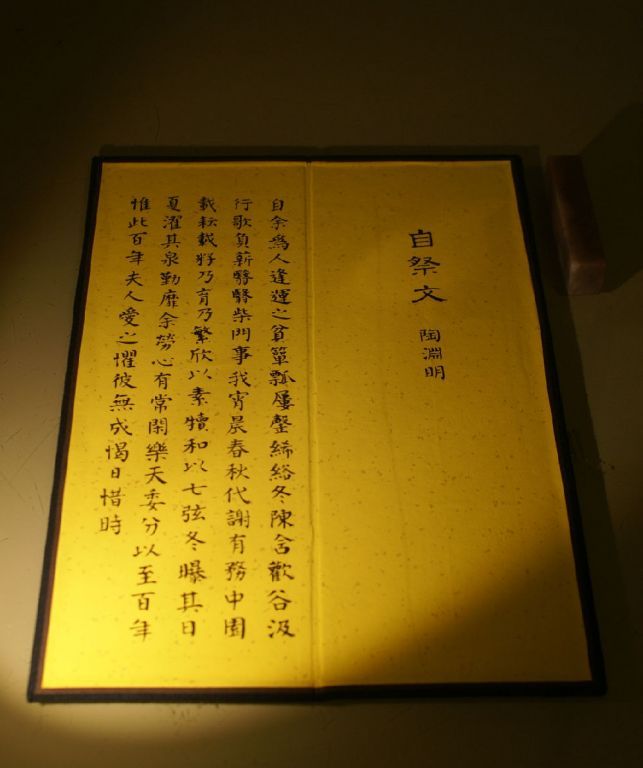 自祭文
陶淵明
自余爲人逢運之貧簞瓢屢罄絺綌冬陳含歡谷汲
行歌負薪翳翳柴門事我宵晨春秋代謝有務中園
載耘載耔乃育乃繁欣以素牘和以七弦冬曝其日
夏濯其泉勤靡余勞心有常閑樂天委分以至百年
惟此百年夫人愛之懼彼無成愒日惜時